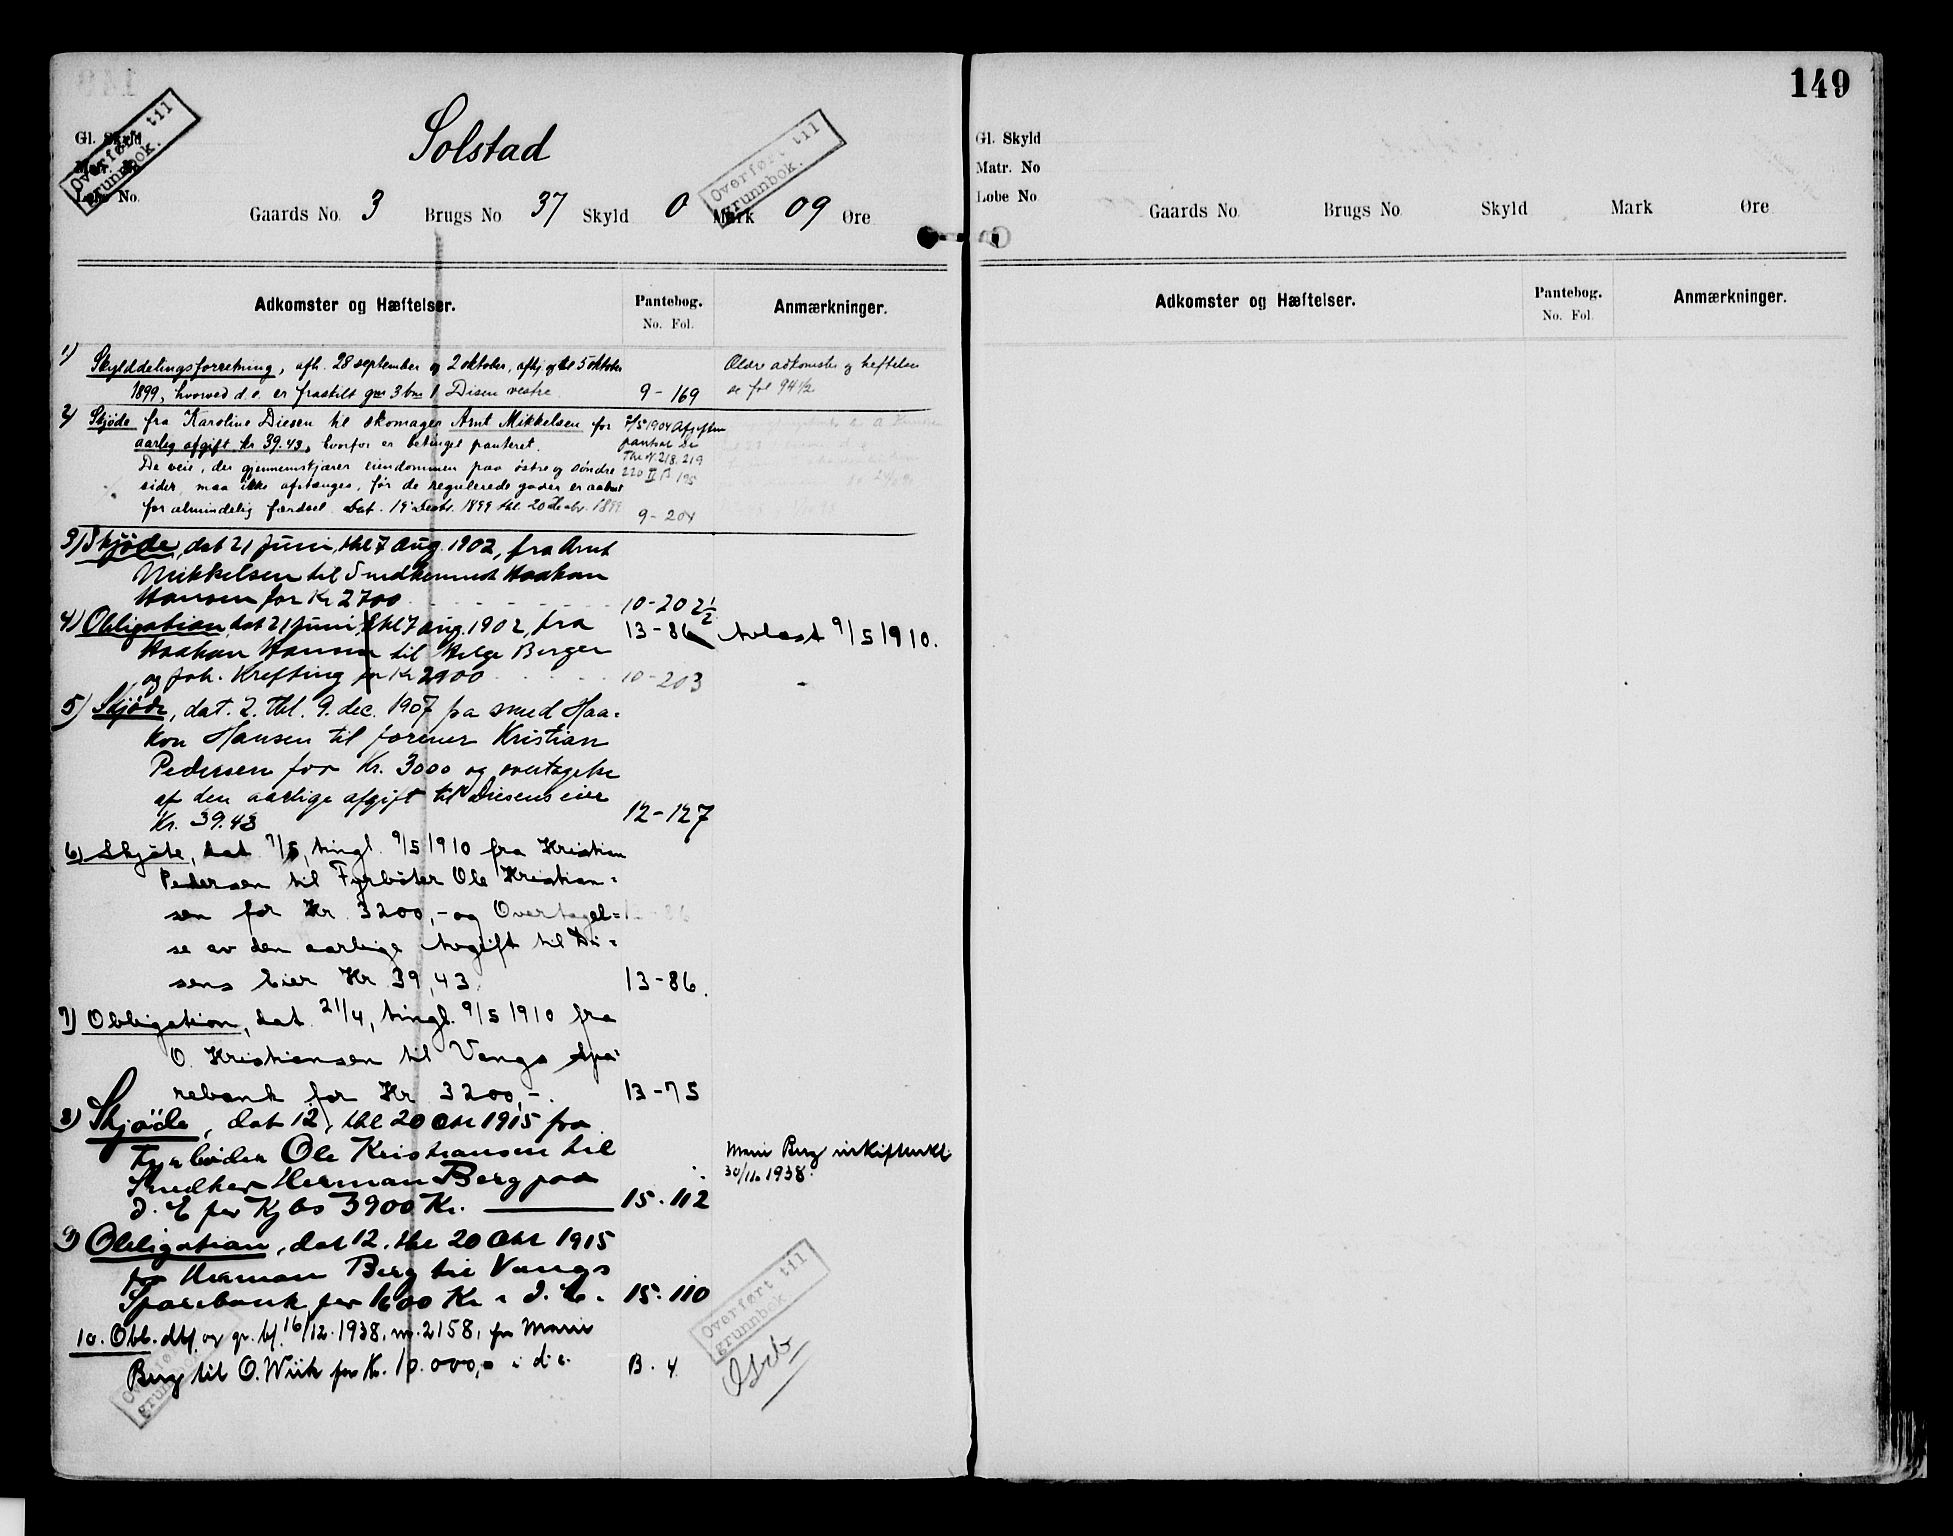 149
Overført til
grunnbok.
Gl. Skyld
Løbe No
Solstad
Overført til
grunnbok.
Gaards No. 3 Brugs No 37 Skyld 0 Mark 09 Øre
Adkomster og Hæftelser. Pantebog. Anmærkninger.
No. Fol.
1) Skylddelingsforretning, afh. 28 september og 2 oktober, afhj. og thl 5 oktober
1899, hvorved d. e. er fraskilt gm 3 bm 1 Disen vestre. 9 - 169
Ældre adkomster og heftelser
se fol 94 1/2
2) Skjøde fra Karoline Diesen til skomager Arnt Mikkelsen for
aarlig afgift kr 39.43, hvorfor er betinget panteret.
De veie, der gjennemskjærer eiendommen paa østre og søndre
sider, maa ikke afstænges, før de regulerede gader er aabnet
for almindelig færdsel. Dat. 19 Decbr. 1899 thl. 20 Decbr. 1899 9 - 204
3) Skjøde, dat 21 Juni, thl 7 Aug. 1902, fra Arnt
Mikkelsen til Smedkunst Haakon
Hansen for Kr 2700 10-202 1/2
4) Obligation, dat 21 Juni, thl 7 aug. 1902, fra 13-86 Avlest 9/5 1910.
Haakon Hansen til Helge Berger
og Joh. Krefting for Kr 2900 10-203
5) Skjøde, dat. 2. thl. 9. dec. 1907 fra smed Haa-
kon Hansen til forener Kristian
Pedersen for Kr. 3000 og overtagelse
af den aarlige afgift til Diesens eier
Kr. 39.43 12-127
6) Skjøte, dat 7/5, tingl. 9/5 1910 fra Kristian
Pedersen til Fyrbøter Ole Kristian-
sen for Kr 3200,- og Overtagel-
se av den aarlige Avgift til Di-
sens Eier Kr 39,43. 13-86.
7) Obligation, dat. 21/4, tingl. 9/5 1910 fra
O. Kristiansen til Vangs Spa-
rebank for Kr 3200,-. 13-75
8) Skjøde, dat 12, thl 20 Okt 1915 fra
Fyrbøder Ole Kristiansen til
Snedker Herman Berg paa
d. E for Kjbs 3900 Kr. 15.112
Marie Berg
30/11. 1938.
9) Obligation, dat 12. thl 20 Okt 1915
fra Herman Berg til Vangs
Sparebank for 1600 Kr i d. E. 15.110
10. Obl. dbf. og gr. bf. 16/12. 1938, nr. 2158, fra Marie
Berg til O. Wiik for Kr. 10.000,- i d. e. B. 4
Overført til
grunnbok.
149
Gl. Skyld
Matr. No
Løbe No
Gaards No. Brugs No. Skyld Mark Øre
Adkomster og Hæftelser. Pantebog. Anmærkninger.
No. Fol.